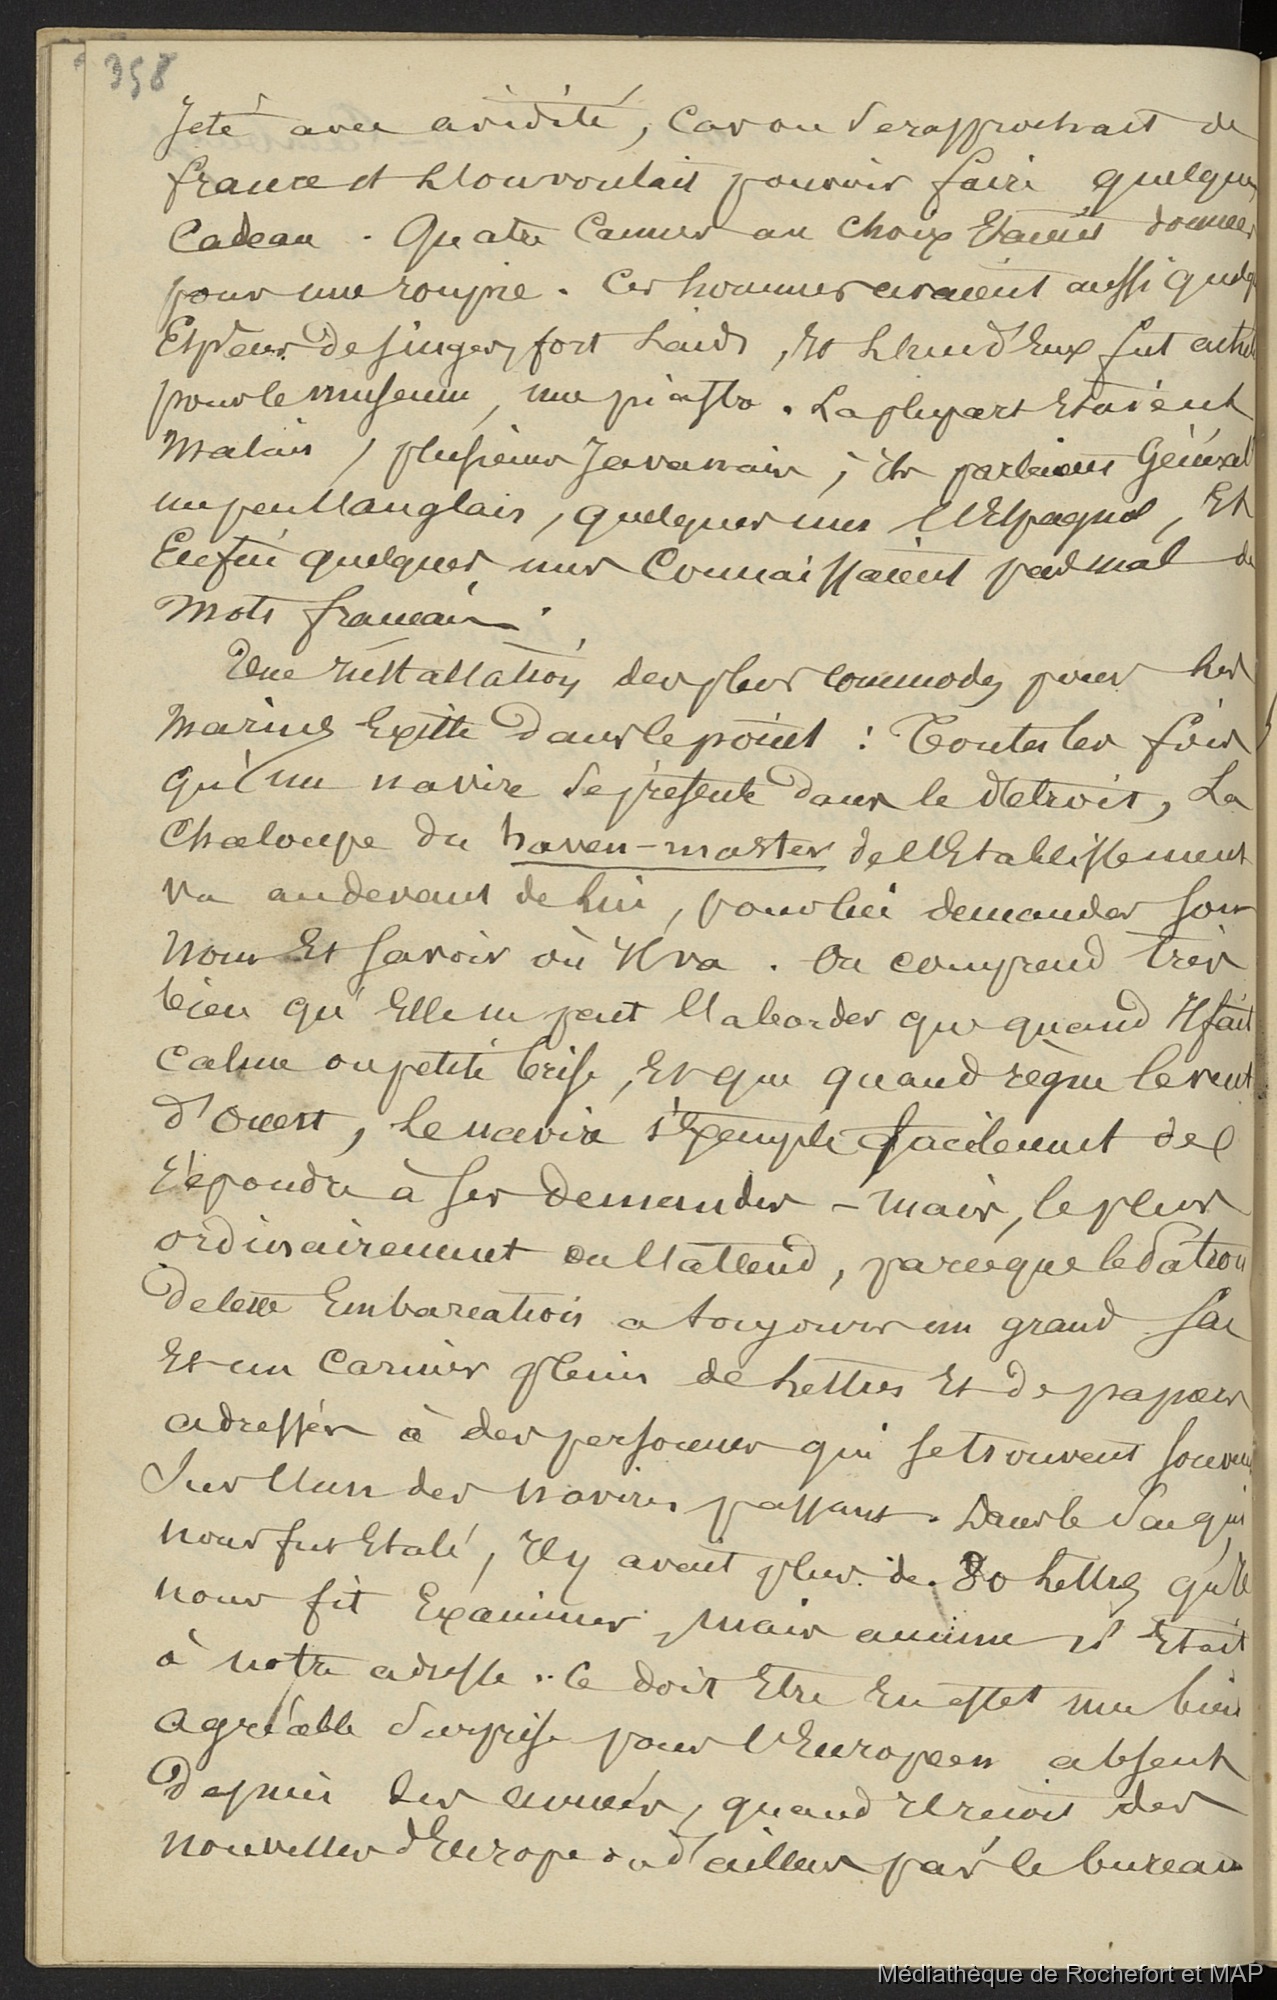 358
Jeté avec avidité, Car on se rapprochait de
france et l'on voulait pouvoir faire quelques
Cadeau. Quatre Cannes au choix Etaient données
pour une roupie. Ces hommes avaient aussi quelq
Espèces de singes, fort laids, Et l'un d'Eux fut acheté
pour le museum, une piastre. La plupart Etaient
Malais, plusieurs Javanais; ils parlaient Général
un peu l'anglais, quelques uns l'Espagnol, Et
Enfin quelques uns Connaissaient pas mal de
Mots français.
Une installation des plus commodes pour les
Marins Existe dans le point : Toutes les fois
qu'un navire se présente dans le détroit, La
Chaloupe du haven-master de l'Etablissement
va au devant de lui, pour lui demander son
Nom Et savoir où Il va. On comprend très
bien qu'Elle ne peut l'aborder que quand Il fait
Calme ou petite brise, Et que quand règne le vent
d'Ouest, le navire s'Exempte facilement de
répondre à ses demandes - Mais, le plus
ordinairement on l'attend, parceque le Patron
de cette Embarcation a toujours un grand sac
Et un Carnier pleins de lettres Et de papiers
adressés à des personnes qui se trouvent souvent
Sur l'un des navires passant. Dans le sac qui
nous fut Etalé, Il y avait plus de 80 lettres qu'Il
nous fit Examiner, Mais aucune n'Etait
à notre adresse. Ce doit Etre En effet une bien
agréable Surprise pour l'Européen absent
Depuis des années, quand Il reçoit des
nouvelles d'Europe ou d'ailleurs par le bureau
Médiathèque de Rochefort et MAP